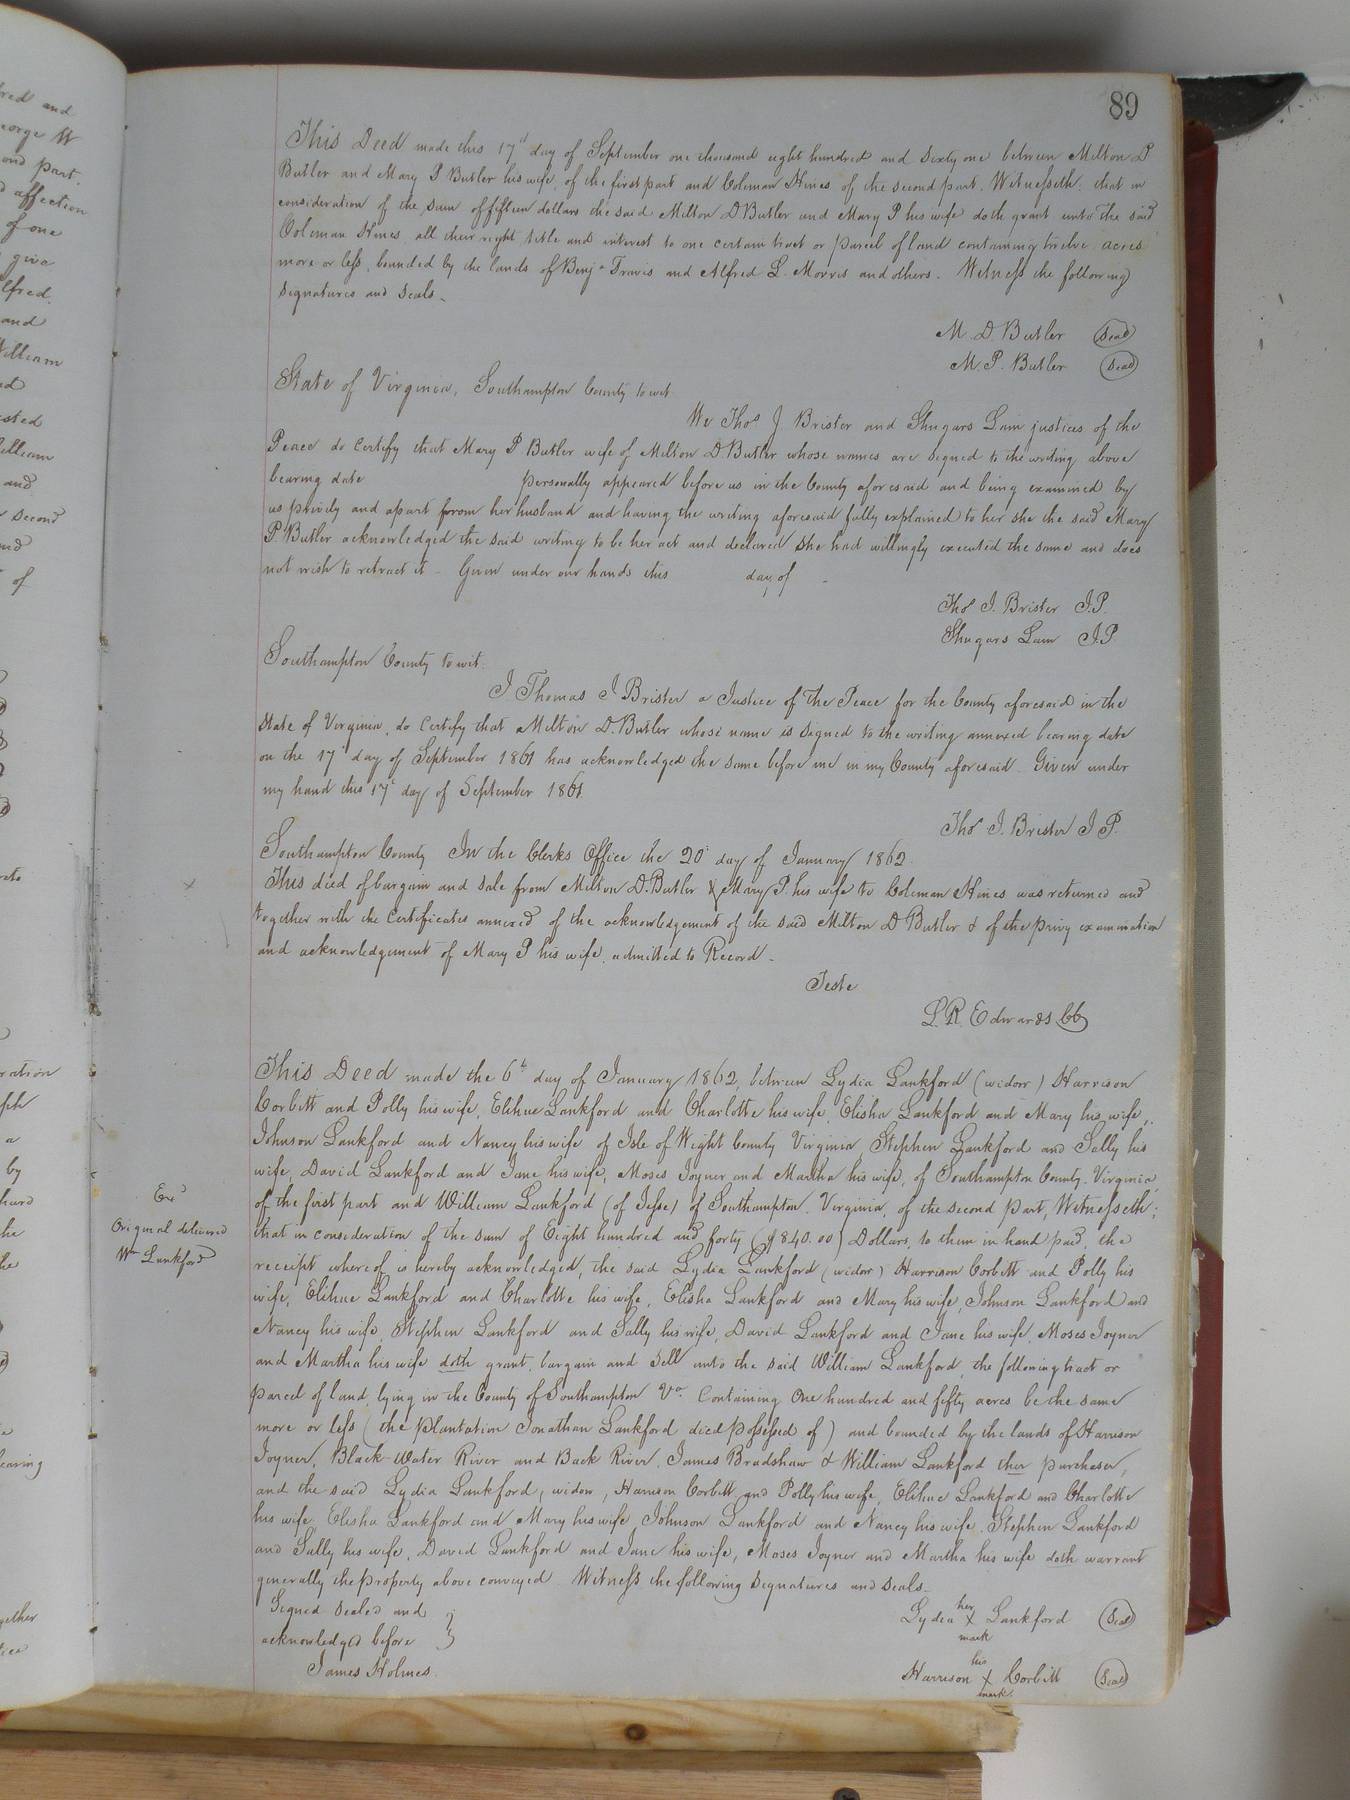 89
This Deed made this 17th day of September one thousand eight hundred and sixty one between Milton D
Butler and Mary P Butler his wife, of the first part and Coleman Hines of the second part, Witnesseth: that in
consideration of the sum of fifteen dollars the said Milton D Butler and Mary P his wife doth grant unto the said
Coleman Hines all their right title and interest to one certain tract or parcel of land containing twelve acres
more or less, bounded by the lands of Benja Travis and Alfred L. Morris and others. Witness the following
signatures and seals.
M. D. Butler Seal
M P. Butler Seal
State of Virginia, Southampton County to wit
We Thos J. Brister and Shugars Lain justices of the
Peace do certify that Mary P Butler wife of Milton D Butler whose names are signed to the writing above
bearing date personally appeared before us in the County aforesaid and being examined by
us privily and apart from her husband and having the writing aforesaid fully explained to her she the said Mary
P. Butler acknowledged the said writing to be her act and declared she had willingly executed the same and does
not wish to retract it. Given under our hands this day of
Thos J. Brister J.P.
Shugars Lain J.P
Southampton County to wit.
I Thomas J Brister a Justice of the Peace for the County aforesaid in the
State of Virginia, do certify that Milton D. Butler whose name is signed to the writing annexed bearing date
on the 17 day of September 1861 has acknowledged the same before me in my County aforesaid. Given under
my hand this 17th day of September 1861.
Thos J. Brister J P.
Southampton County In the Clerks Office the 20th day of January 1862.
This deed of bargain and sale from Milton D. Butler & Mary P. his wife to Coleman Hines was returned and
together with the certificates annexed of the acknowledgement of the said Milton D Butler & of the privy examination
and acknowledgement of Mary P his wife, admitted to Record.
Teste
L. R. Edwards CC
This Deed made the 6th day of January 1862, between Lydia Lankford (widow) Harrison
Corbitt and Polly his wife, Elihue Lankford and Charlotte his wife, Elisha Lankford and Mary his wife,
Johnson Lankford and Nancy his wife of Isle of Wight County Virginia, Stephen Lankford and Sally his
wife, David Lankford and Jane his wife, Moses Joyner and Martha his wife, of Southampton County Virginia,
of the first part and William Lankford (of Jesse) of Southampton Virginia, of the second part, Witnesseth;
that in consideration of the sum of Eight hundred and forty ($840.00) Dollars, to them in hand paid, the
receipt whereof is hereby acknowledged, the said Lydia Lankford (widow) Harrison Corbitt and Polly his
wife, Elihue Lankford and Charlotte his wife, Elisha Lankford and Mary his wife, Johnson Lankford and
Nancy his wife, Stephen Lankford and Sally his wife, David Lankford and Jane his wife, Moses Joyner
and Martha his wife doth grant, bargain and sell unto the said William Lankford, the following tract or
parcel of land, lying in the County of Southampton Va. Containing One hundred and fifty acres be the same
more or less (the Plantation Jonathan Lankford died possessed of) and bounded by the lands of Harrison
Joyner, Black Water River and Back River, James Bradshaw & William Lankford ther purchaser,
and the said Lydia Lankford, widow, Harrison Corbitt and Polly his wife, Elihue Lankford and Charlotte
his wife, Elisha Lankford and Mary his wife, Johnson Lankford and Nancy his wife, Stephen Lankford
and Sally his wife, David Lankford and Jane his wife, Moses Joyner and Martha his wife doth warrant
generally the property above conveyed. Witness the following signatures and seals.
Signed Sealed and
acknowledged before
James Holmes.
Lydia her X mark Lankford Seal
Harrison his X mark Corbitt Seal
Exd
Original delivered
Wm Lankford